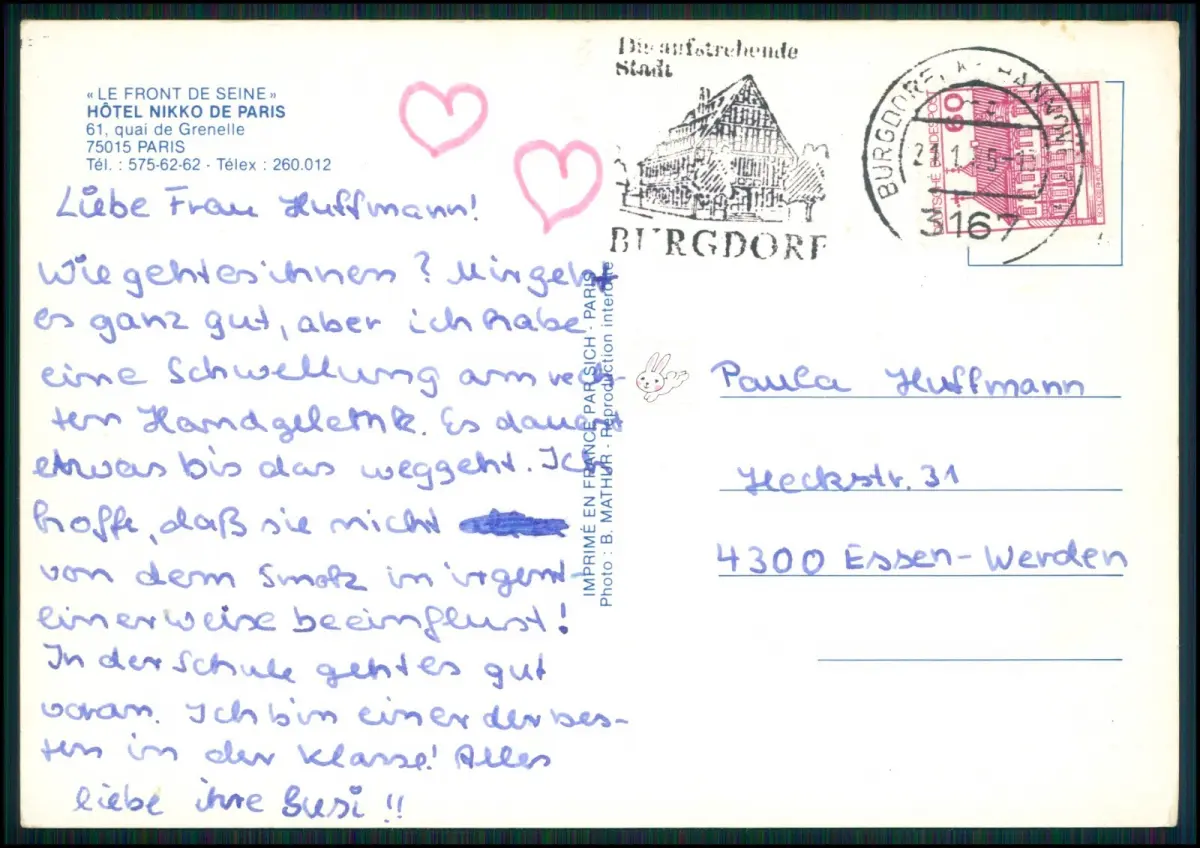 « LE FRONT DE SEINE »
HÔTEL NIKKO DE PARIS
61, quai de Grenelle
75015 PARIS
Tél. : 575-62-62 - Télex : 260.012
Liebe Frau Huffmann!
Wie geht es ihnen? Mir geht
es ganz gut, aber ich habe
eine Schwellung am rech-
ten Handgelenk. Es dauert
etwas bis das weggeht. Ich
hoffe, daß sie nicht
von dem Smok in irgent-
einer weise beeinflust!
In der Schule geht es gut
voran. Ich bin einer der bes-
ten in der Klasse! Alles
liebe ihre Susi!!
IMPRIMÉ EN FRANCE PAR SICH - PARIS
Photo : B. MATHUR - Reproduction interdite
Die aufstrebende
Stadt
BURGDORF
BURGDORF, HANNOVER
3167
DEUTSCHE BUNDESPOST
60
Paula Huffmann
Heckstr. 31
4300 Essen-Werden